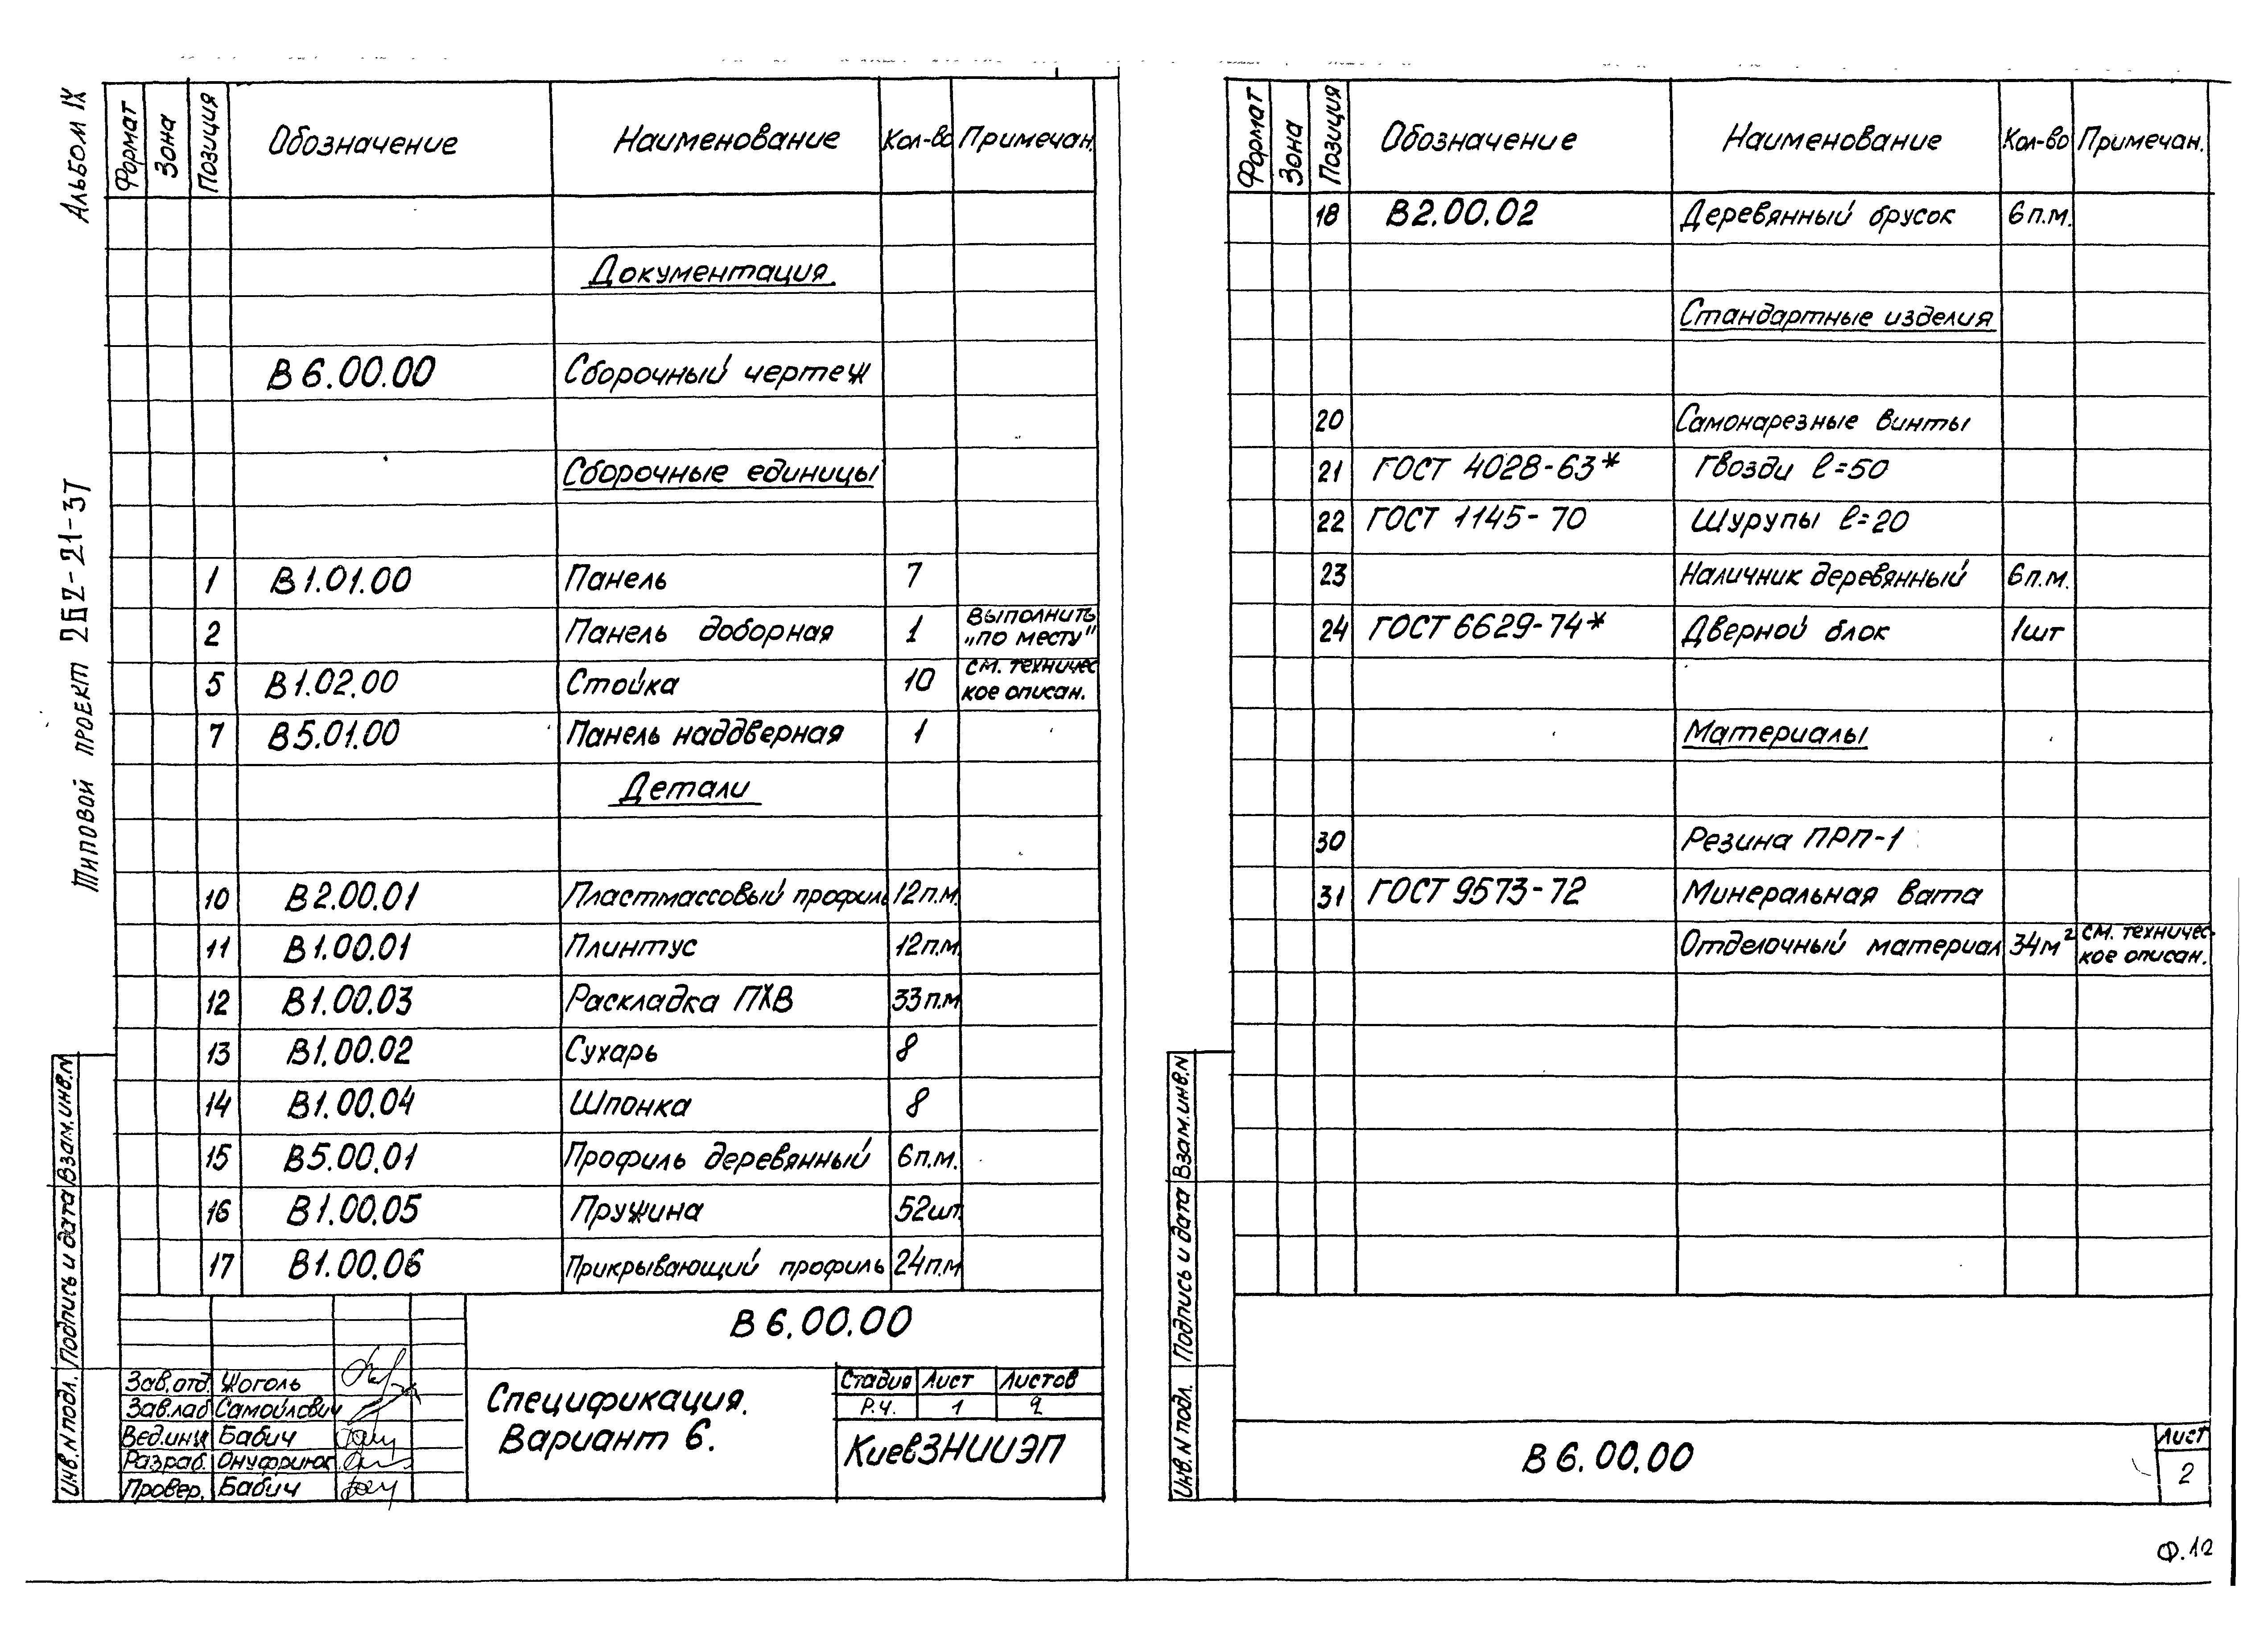 Альбом IX
Типовой проект 262-21-3Т
Формат Зона Позиция Обозначение Наименование Кол-во Примечан.
Документация
В 6.00.00 Сборочный чертеж
Сборочные единицы
1 В 1.01.00 Панель 7
2 Панель доборная 1 Выполнить „по месту"
5 В 1.02.00 Стойка 10 см. техничес кое описан.
7 В 5.01.00 Панель наддверная 1
Детали
10 В 2.00.01 Пластмассовый профиль 12 п.м.
11 В 1.00.01 Плинтус 12 п.м.
12 В 1.00.03 Раскладка ПХВ 33 п.м
13 В 1.00.02 Сухарь 8
14 В 1.00.04 Шпонка 8
15 В 5.00.01 Профиль деревянный 6 п.м.
16 В 1.00.05 Пружина 52 шт.
17 В 1.00.06 Прикрывающий профиль 24 п.м
В 6.00.00
Зав.отд. Жоголь
Зав.лаб Самойлович
Вед.инж Бабич
Разраб. Онуфриюк
Провер. Бабич
Спецификация.
Вариант 6.
Стадия Лист Листов
Р.Ч. 1 2
КиевЗНИИЭП
Инв.N подл. Подпись и дата Взам.инв.N
Формат Зона Позиция Обозначение Наименование Кол-во Примечан.
18 В 2.00.02 Деревянный брусок 6 п.м.
Стандартные изделия
20 Самонарезные винты
21 ГОСТ 4028-63* Гвозди ℓ=50
22 ГОСТ 1145-70 Шурупы ℓ=20
23 Наличник деревянный 6 п.м.
24 ГОСТ 6629-74* Дверной блок 1 шт
Материалы
30 Резина ПРП-1
31 ГОСТ 9573-72 Минеральная вата
Отделочный материал 34 м² см. техничес- кое описан.
Инв.N подл. Подпись и дата Взам.инв.N
В 6.00.00
Лист
2
Ф.12